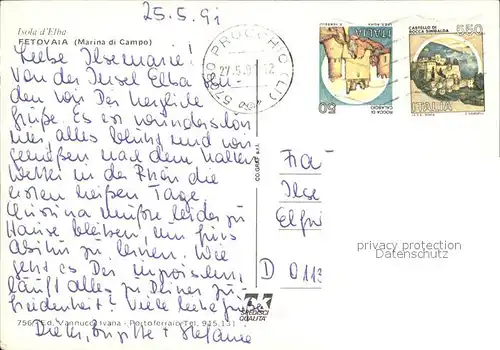 25.5.91
Isola d'Elba
FETOVAIA (Marina di Campo)
Liebe Ilsemarie!
Von der Insel Elba sen-
den wir Dir herzliche
Grüße. Es ist wunderschön
hier, alles blüht und wir
genießen nach dem kalten
Wetter in der Rhön die
ersten heißen Tage.
Christina mußte leider zu
Hause bleiben, um fürs
Abitur zu lernen. Wie
geht es Dir inzwischen,
läuft alles zu Deiner Zu-
friedenheit? Viele liebe Grüße
Dieter, Brigitte + Stefanie
756 - Ed. Vannucci Ivana - Portoferraio Tel. 915.131
57030 PROCCHIO (LI)
27.5.9 12
ITALIA
50
ROCCA DI
CALASCIO
CASTELLO DI
ROCCA SINIBALDA
650
ITALIA
Fra
Ilse
Elfri
D 0113
privacy protection
Datenschutz
CREDISCI
QUALITA'